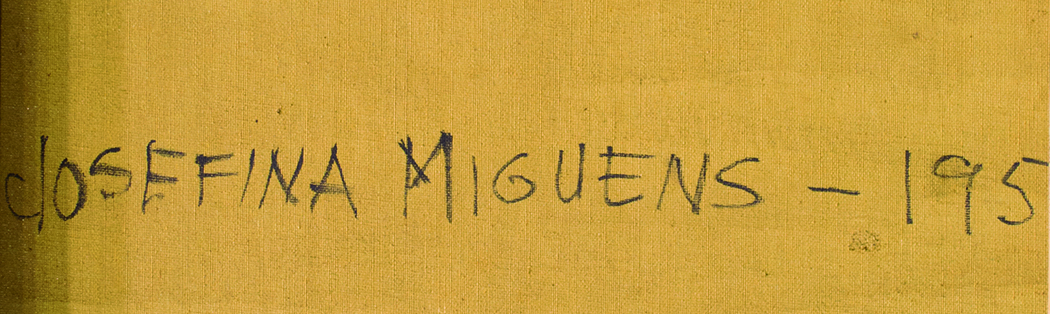 JOSEFINA MIGUENS - 195